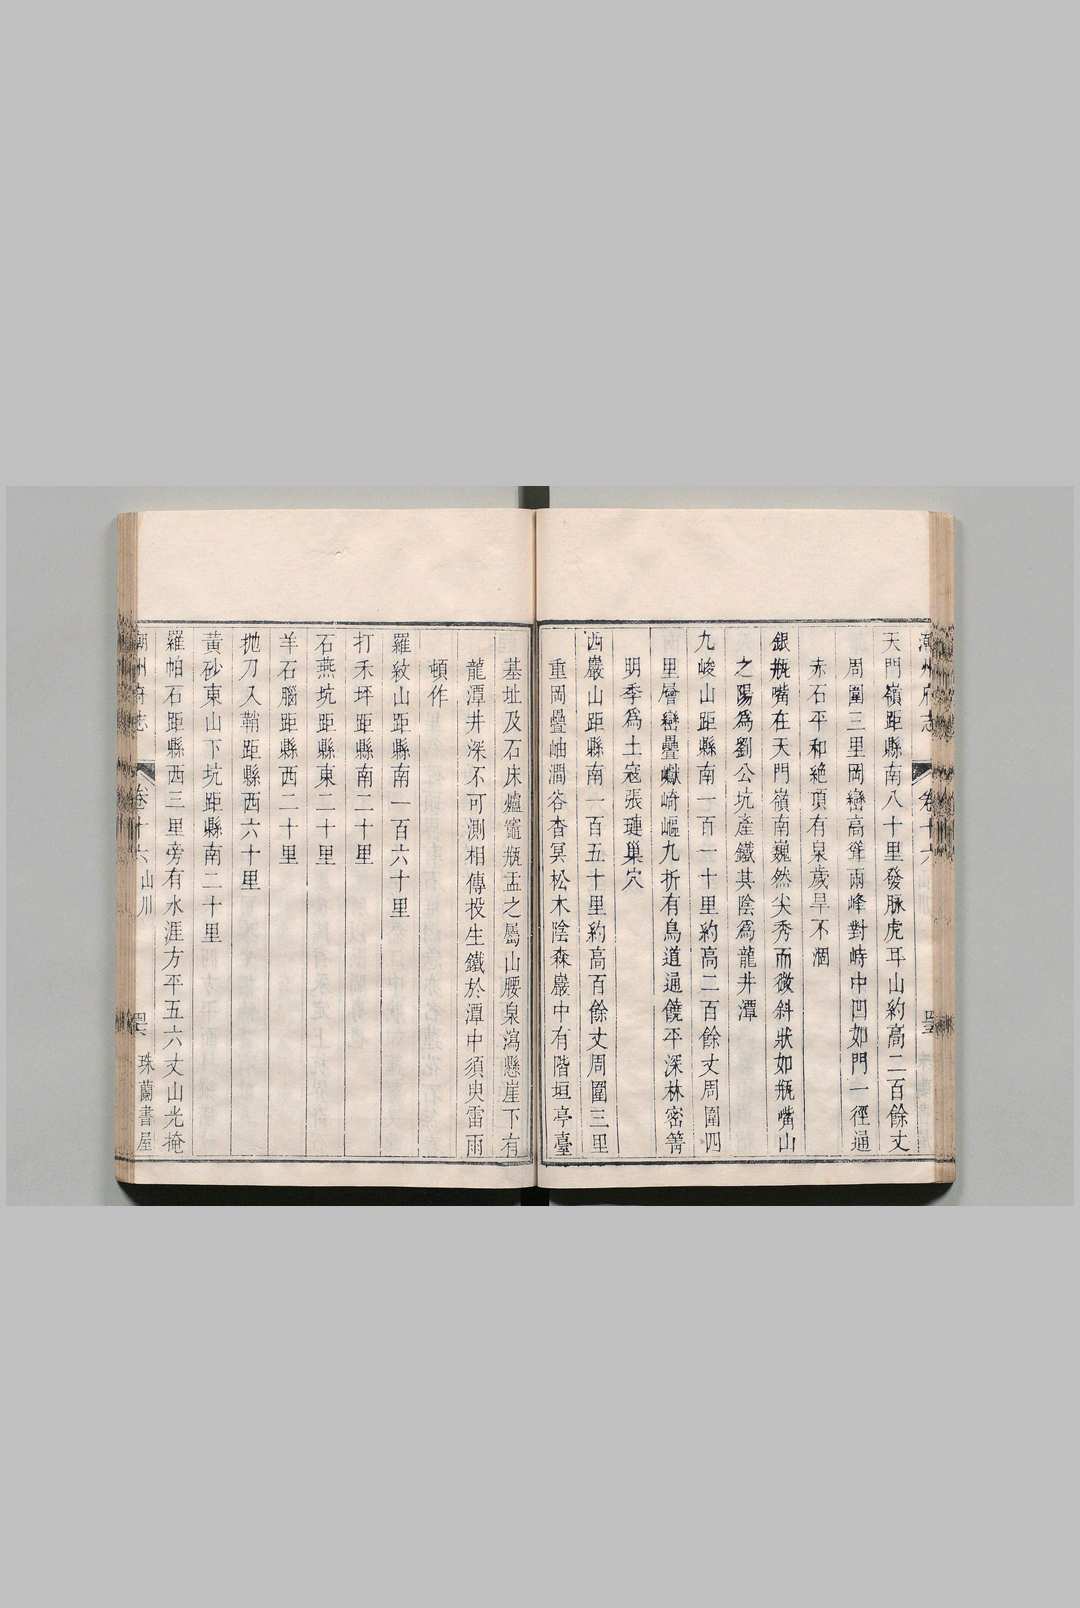 潮州府志 卷十六
天門嶺距縣南八十里發脉虎耳山約高二百餘丈
周圍三里岡巒高聳兩峰對峙中凹如門一徑通
赤石平和絶頂有泉歲旱不涸
銀瓶嘴在天門嶺南巍然尖秀而微斜狀如瓶嘴山
之陽爲劉公坑產鐵其陰爲龍井潭
九峻山距縣南一百一十里約高二百餘丈周圍四
里層巒疊巘崎嶇九折有鳥道通饒平深林密箐
明季爲土寇張璉巢穴
西巖山距縣南一百五十里約高百餘丈周圍三里
重岡疊岫澗谷杳冥松木陰森巖中有階垣亭臺
基址及石床爐竈瓶盂之屬山腰泉瀉懸崖下有
龍潭井深不可測相傳投生鐵於潭中須臾雷雨
頓作
羅紋山距縣南一百六十里
打禾坪距縣南二十里
石燕坑距縣東二十里
羊石腦距縣西二十里
抛刀入鞘距縣西六十里
黃砂東山下坑距縣南二十里
羅帕石距縣西三里旁有水涯方平五六丈山光掩
潮州府志 卷十六 山川 珠蘭書屋